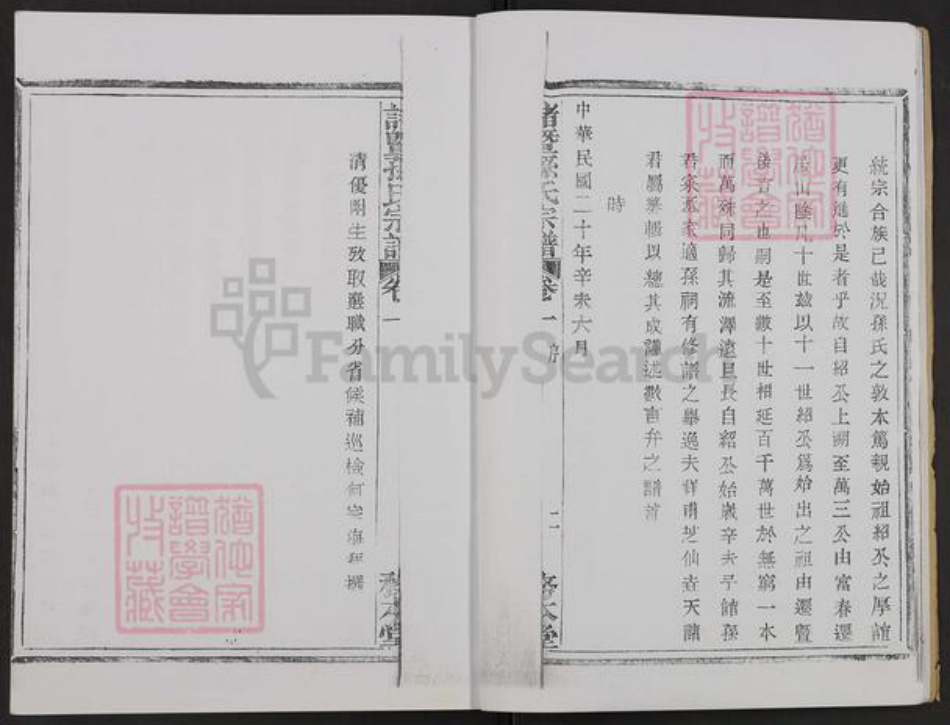 統宗合族已哉況孫氏之敦本篤親始祖紹公之厚誼
更有進於是者乎故自紹公上溯至萬三公由富春遷
山陰凡十世茲以十一世紹公為始出之祖由遷暨
後言之也嗣是至數十世相延百千萬世於無窮一本
而萬殊同歸其流澤遠且長自紹公始歲辛未予館孫
君家孫家適孫祠有修譜之舉逸夫祥甫芝仙垚天諸
君屬襄輯以總其成謹述數言弁之譜首
時
中華民國二十年辛未六月
諸暨孫氏宗譜
卷一
序
二
敦本堂
諸暨孫氏宗譜
卷一
清優附生攷取選職分省候補巡檢何
撰
敦本堂
FamilySearch
譜學會
收藏
譜學會
收藏